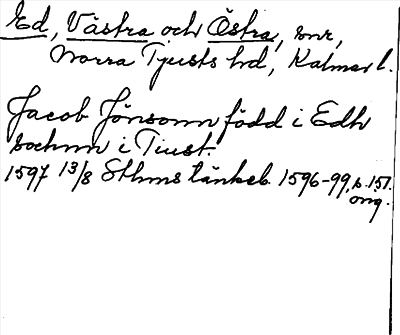 Ed, Västra och Östra, snr,
Norra Tjusts hd, Kalmar l.
Jacob Jönsonn född i Edh
sochnn i Tiust.
1597 13/8 Sthms tänkeb. 1596-99, s. 151.
orig.